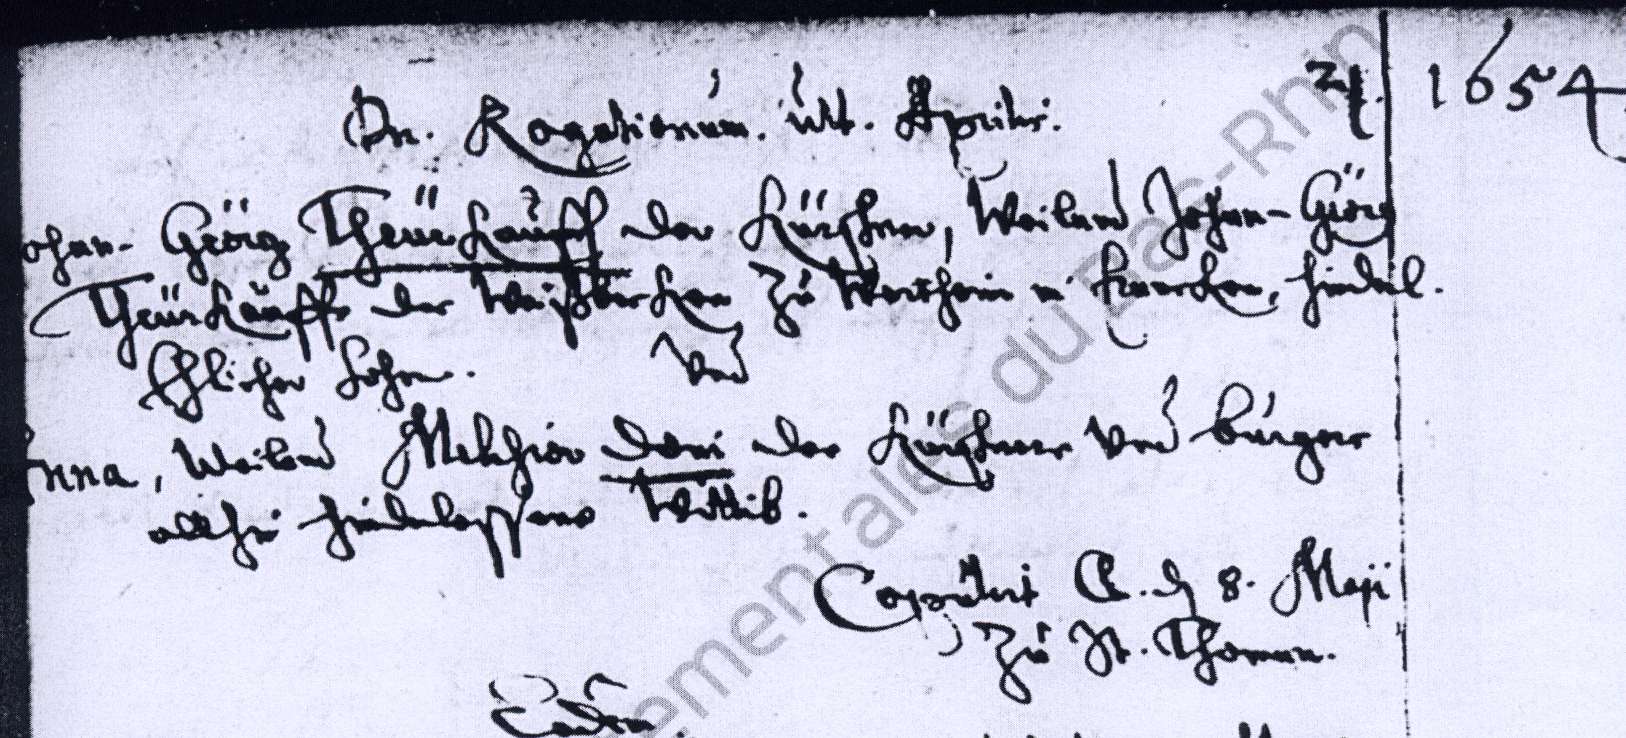 Dn. Rogationum. ult. Aprilis. 21. 1654
ohan- Geörg Theürkauff der Kürschner, Weiland Johan- Geörg
Theürkauffs des Weißbecken zu Wertheim in Francken, hinderl.
Ehlicher Sohn. Vnd
Anna, Weiland Melchior Dorn des Kürschners vnd burgers
allhie hinderlassene Wittib.
Copulirt d. 8. Maji
Zu St. Thoman.
Eadem
du Bas-Rhin